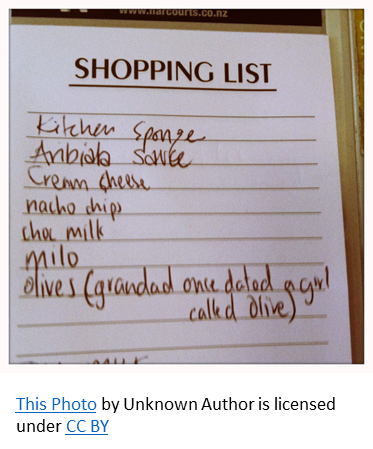 www.harcourts.co.nz
SHOPPING LIST
Kitchen Sponge
Cream Cheese
nacho chips
choc milk
milo
olives (grandad once dated a girl
called Olive)
This Photo by Unknown Author is licensed
under CC BY